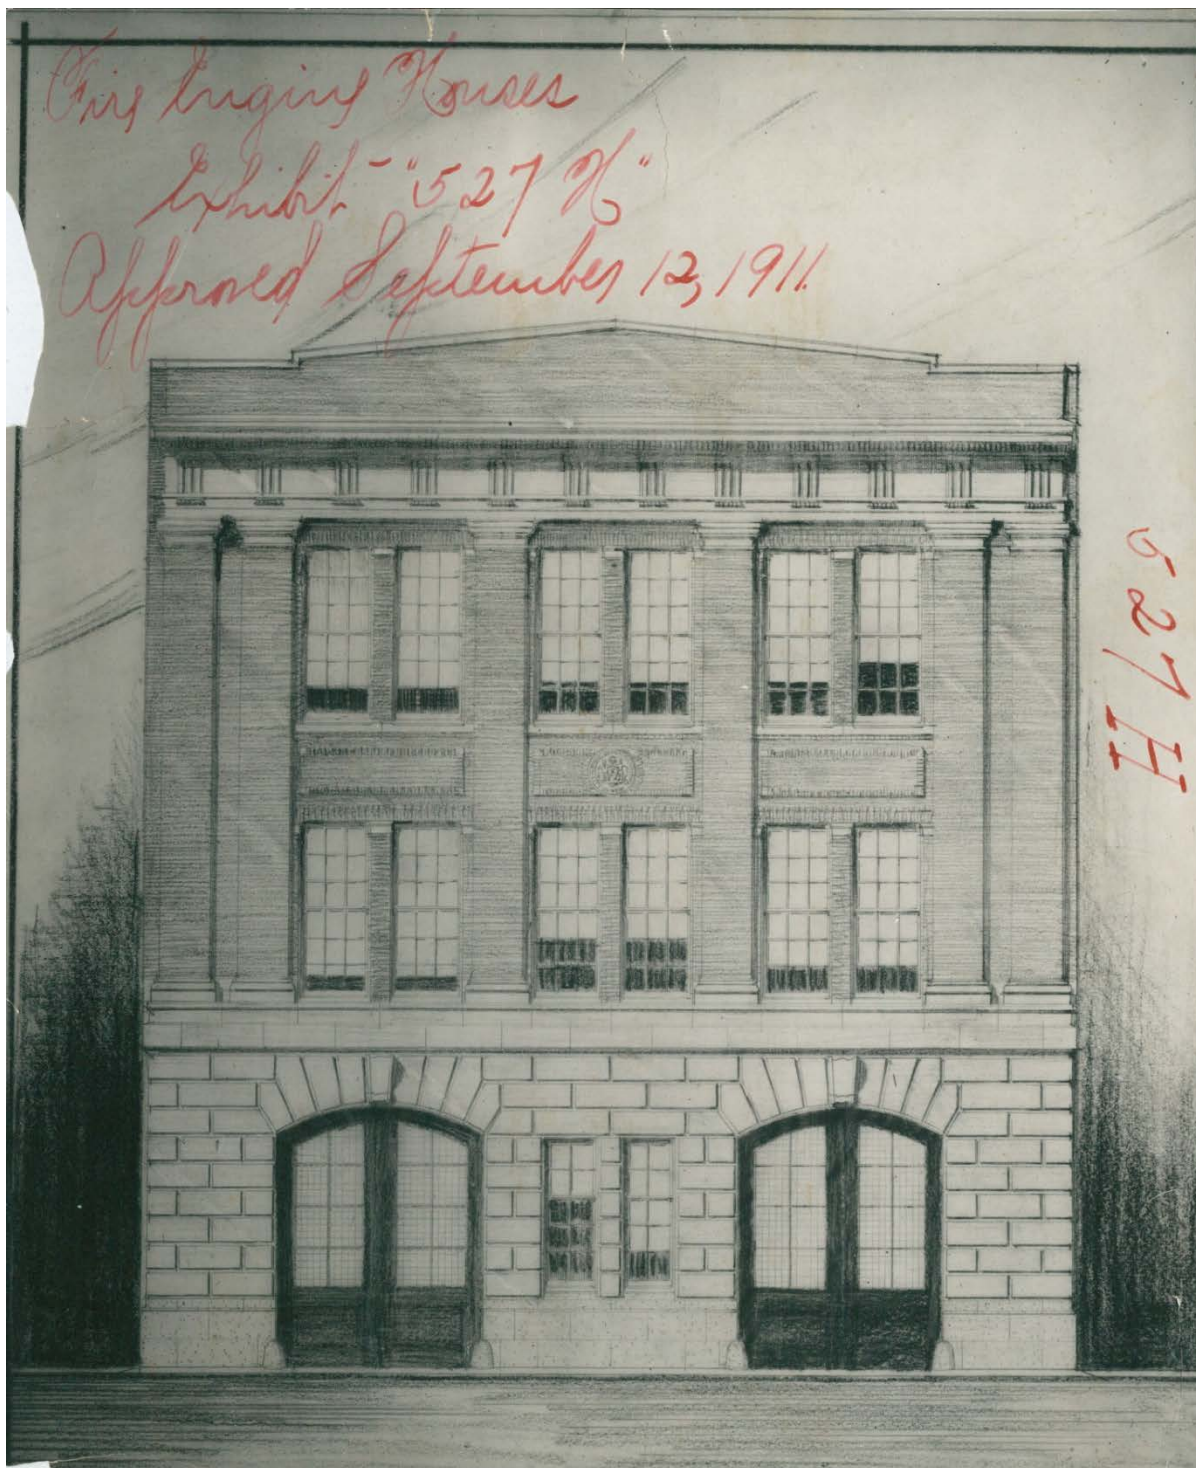 Fire Engine Houses
Exhibit - "527 H"
Approved September 12, 1911.
527 H